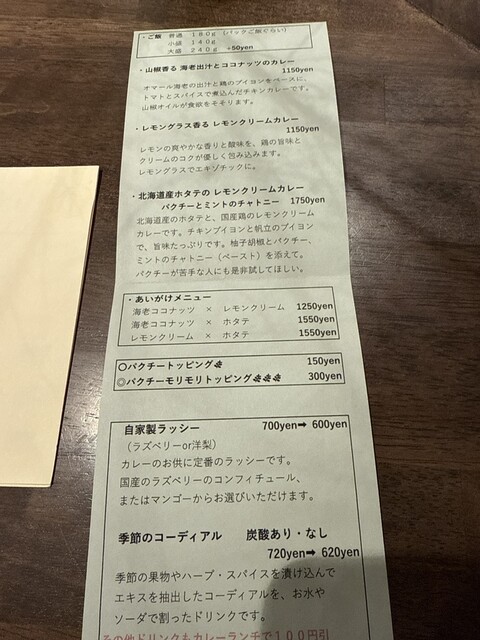 ・ご飯　普通　１８０ｇ（パックご飯ぐらい）
小盛　１４０ｇ
大盛　２４０ｇ　+50yen
・山椒香る 海老出汁とココナッツのカレー
1150yen
オマール海老の出汁と鶏のブイヨンをベースに、
トマトとスパイスで煮込んだチキンカレーです。
山椒オイルが食欲をそそります。
・レモングラス香る レモンクリームカレー
1150yen
レモンの爽やかな香りと酸味を、鶏の旨味と
クリームのコクが優しく包み込みます。
レモングラスでエキゾチックに。
・北海道産ホタテの レモンクリームカレー
パクチーとミントのチャトニー　1750yen
北海道産のホタテと、国産鶏のレモンクリーム
カレーです。チキンブイヨンと帆立のブイヨン
で、旨味たっぷりです。柚子胡椒とパクチー、
ミントのチャトニー（ペースト）を添えて。
パクチーが苦手な人にも是非試してほしい。
・あいがけメニュー
海老ココナッツ　×　レモンクリーム　1250yen
海老ココナッツ　×　ホタテ　1550yen
レモンクリーム　×　ホタテ　1550yen
〇パクチートッピング　150yen
◎パクチーモリモリトッピング　300yen
自家製ラッシー　700yen➡ 600yen
（ラズベリーor洋梨）
カレーのお供に定番のラッシーです。
国産のラズベリーのコンフィチュール、
またはマンゴーからお選びいただけます。
季節のコーディアル　炭酸あり・なし
720yen➡ 620yen
季節の果物やハーブ・スパイスを漬け込んで
エキスを抽出したコーディアルを、お水や
ソーダで割ったドリンクです。
その他ドリンクもカレーランチで１００円引